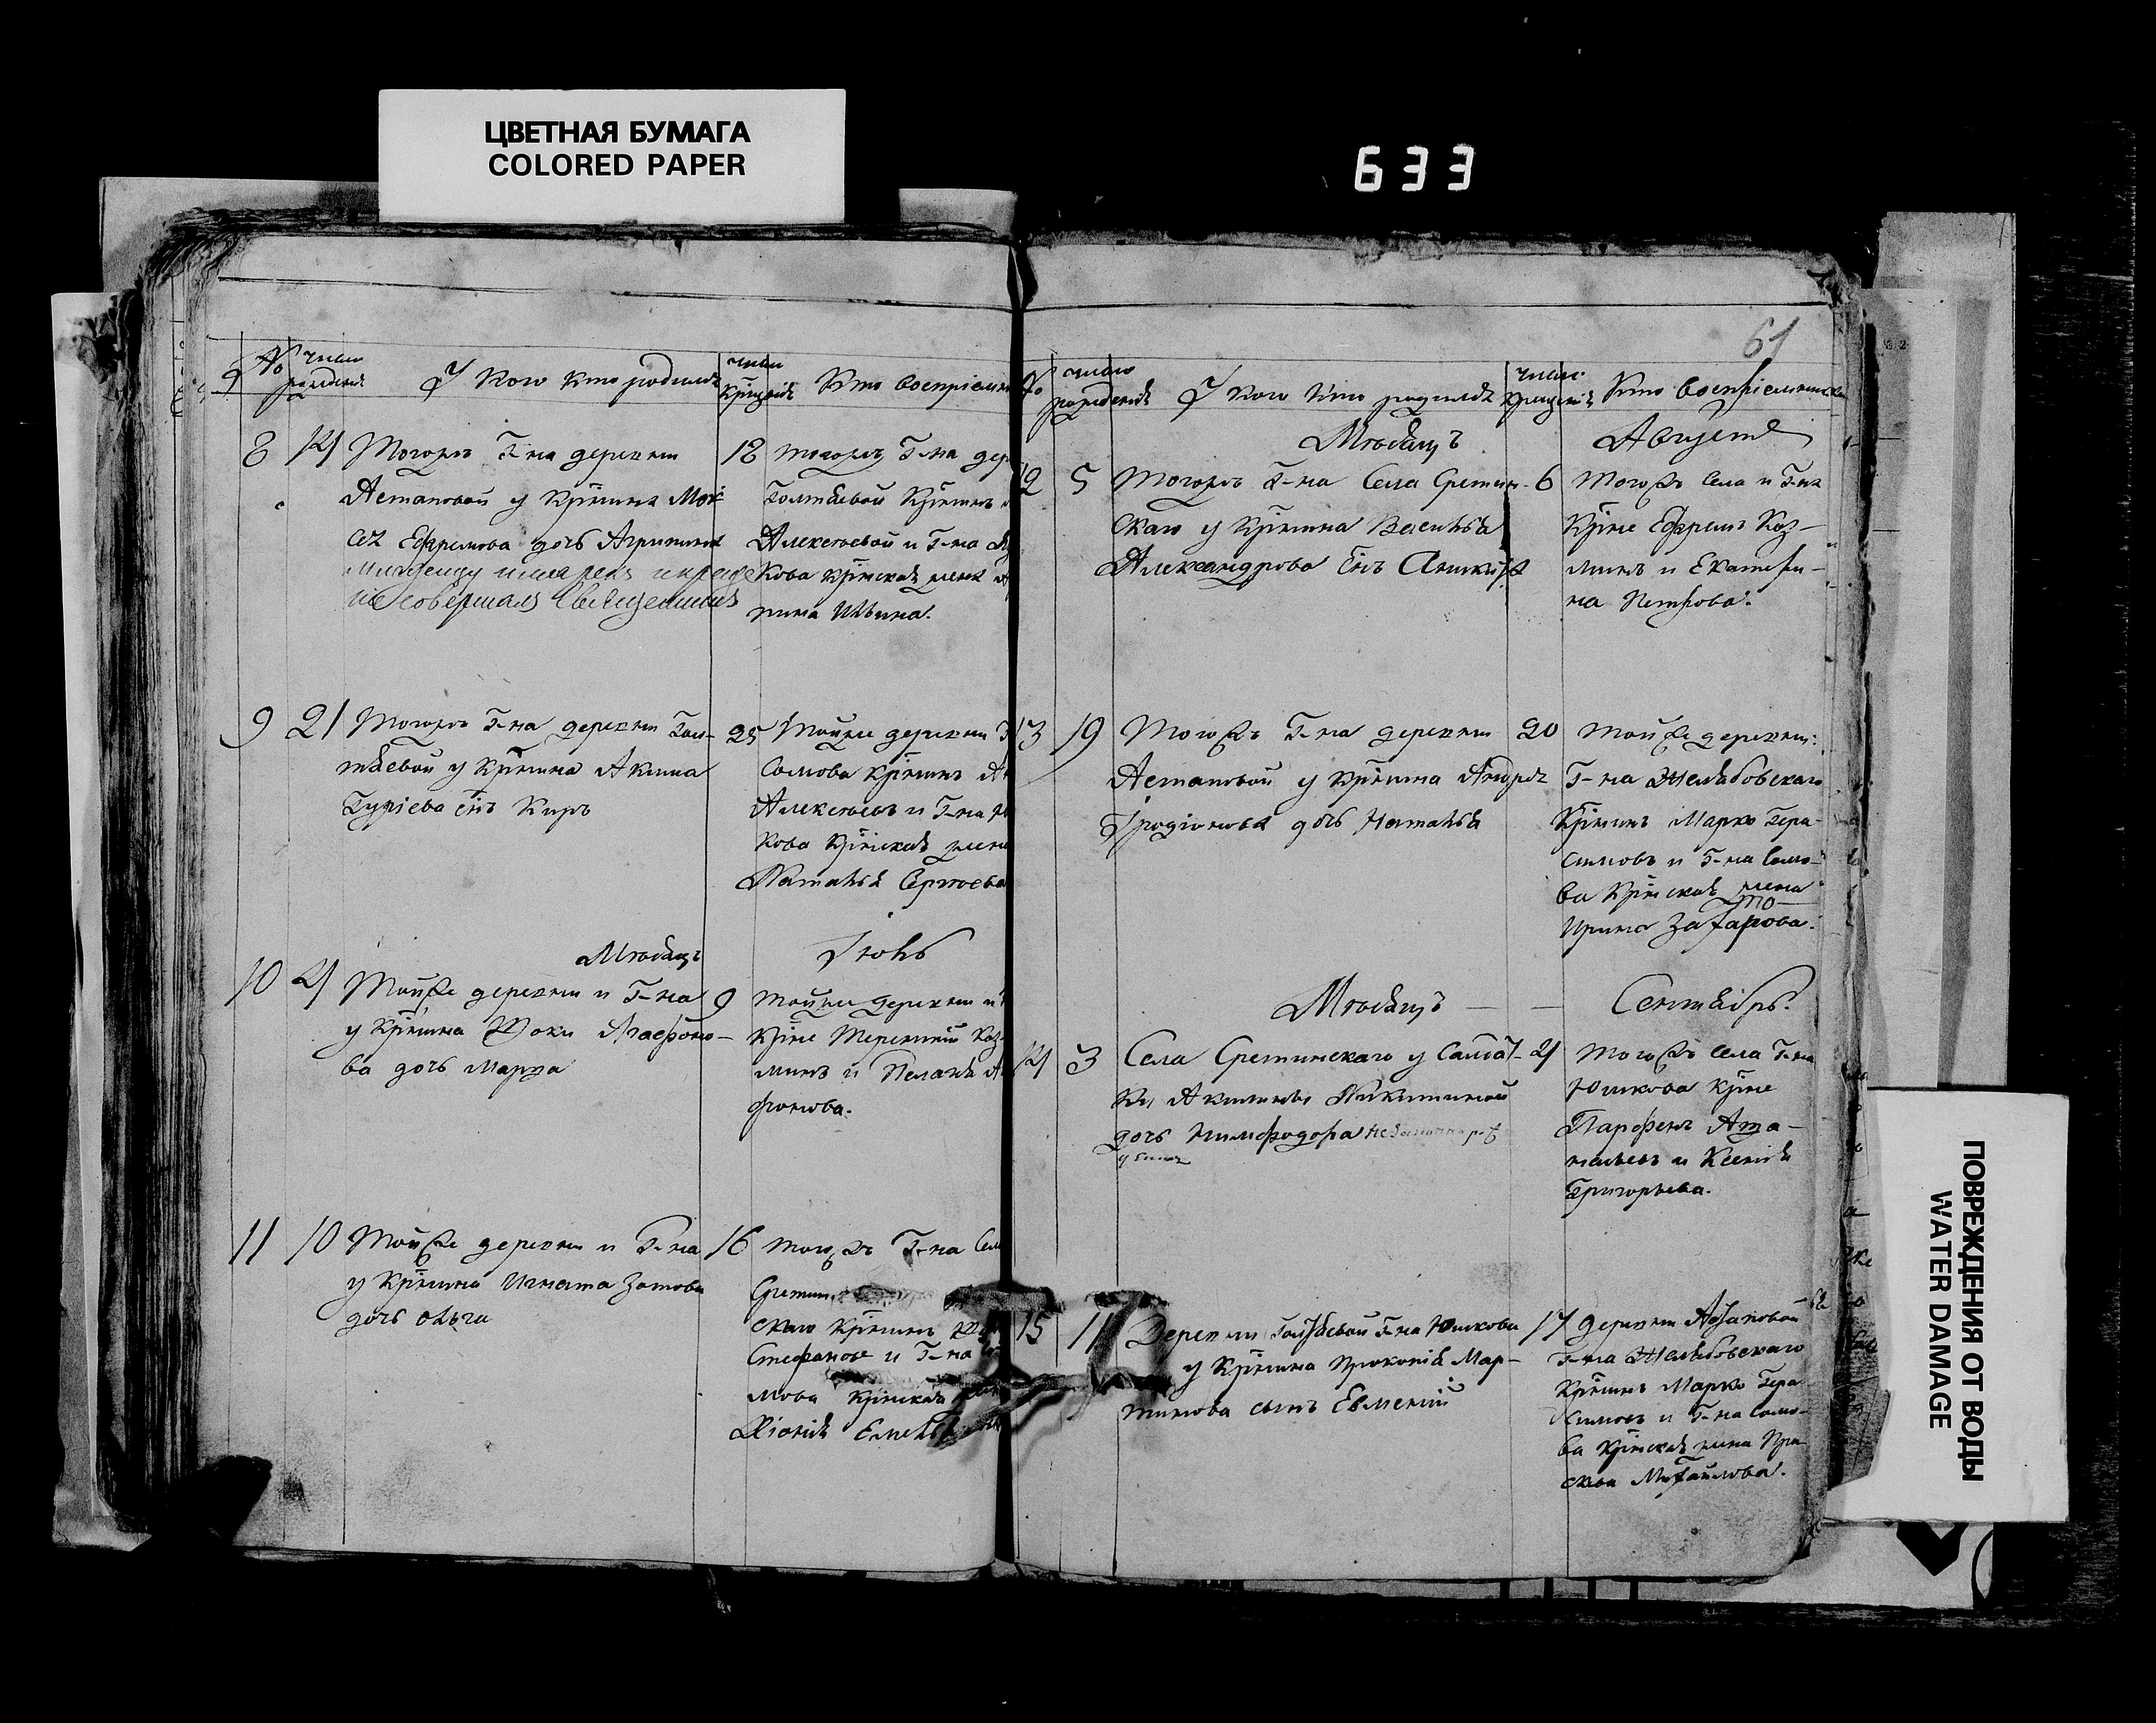 ЦВЕТНАЯ БУМАГА
COLORED PAPER
633
61
№ число рожденія У кого кто родился число крещенія Кто воспріемни
8 14 Тогожъ Г-на деревни
Астаповой у Крѣнина Мои
сея Ефремова дочь Агрипина
младенцу имя реля и креще
не совершалъ Священникъ
18 тогожъ Г-на дер
Голтяевой Крѣнинъ
Алексѣевой и Г-на
кова крѣнская жена
рина Ильина.
9 21 Тогожъ Г-на деревни Гол-
тяевой у Крѣнина Акима
Гуріева снъ Киръ
25 Тойже деревни Г
Сомова Крѣнинъ
Алексѣевъ и Г-на
кова крѣнская жена
Наталья Сергѣева
Мѣсяцъ Іюнь
10 4 Тойже деревни и Г-на
у Крѣнина Фоки Агафоно-
ва дочь Марѳа
9 тойже деревни и
Крѣне Терентій Коз-
минъ и Пелагѣя
фонова.
11 10 Тойже деревни и Г-на
у Крѣнина Игната Зотова
дочь Ольга
16 тогожъ Г-на Села
Сретин
скаго Крѣнинъ
Стефановъ и Г-на Со
мова крѣнская жена
Хіонія Емелья
№ число рожденія У кого кто родился число крещенія Кто воспріемники
Мѣсяцъ Августъ
12 5 Тогожъ Г-на Села Сретин-
скаго у Крѣнина Василья
Александрова снъ Аникита
6 Тогожъ Села и Г-на
Крѣне Ефремъ Коз-
минъ и Екатери-
на Петрова.
13 19 Тогожъ Г-на деревни
Астаповой у Крѣнина Андрея
Іродіонова дочь Наталья
20 тойже деревни
Г-на Желябовскаго
Крѣнинъ Марко Гера-
симовъ и Г-на Сомо-
ва Крѣнская жена
Ирина Захарова.
Мѣсяцъ Сентябрь
14 3 Села Сретинскаго у Салдат-
ки Акилины Никитиной
дочь Нимфодора незаконнор
4 тогожъ села Г-на
Юшкова Крѣне
Парфенъ Ана-
ньевъ и Ксенія
Григорьева.
15 17 Деревни Голтяевой Г-на Юшкова
у Крѣнина Прокопія Мар-
тинова сынъ Евменій
17 деревни Астаповой
Г-на Желябовскаго
Крѣнинъ Марко Гера
симовъ и Г-на Сомо-
ва Крѣнская жена Пра
сковья Михайлова.
ПОВРЕЖДЕНИЯ ОТ ВОДЫ
WATER DAMAGE